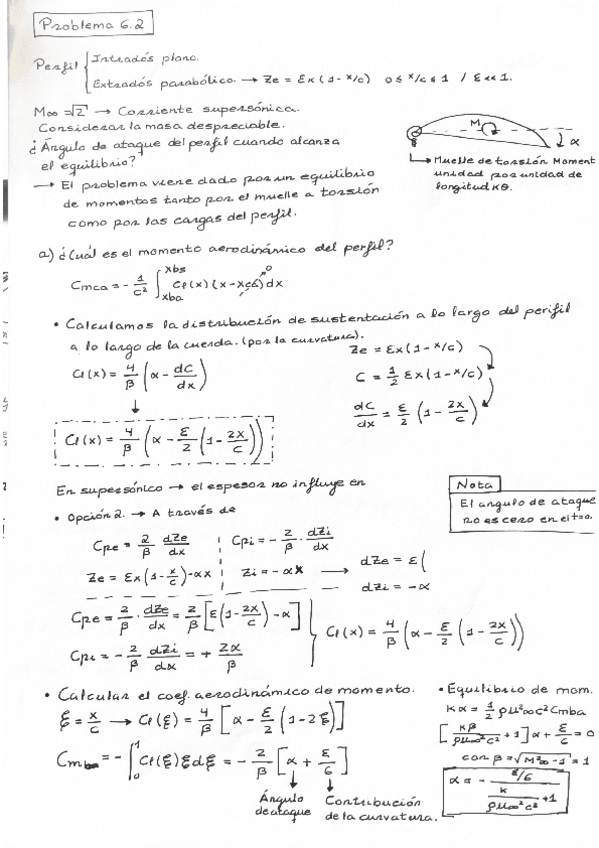 Problema 6.2
Perfil { Intradós plano.
Extradós parabólico. → Ze = Ex(1-x/c) 0≤x/c≤1 / ε<<1.
M∞=√2 → Corriente supersónica.
Considerar la masa despreciable.
¿Ángulo de ataque del perfil cuando alcanza
el equilibrio?
→ El problema viene dado por un equilibrio
de momentos tanto por el muelle a torsión
como por las cargas del perfil.
M
α
→ Muelle de torsión Moment
unidad por unidad de
longitud Kθ.
a) ¿Cuál es el momento aerodinámico del perfil?
Cmca = - 1/c² ∫xba^xbs Cl(x)(x-xca)dx
0
• Calculamos la distribución de sustentación a lo largo del perfil
a lo largo de la cuerda. (por la curvatura).
Cl(x) = 4/β (α - dC/dx)
Ze = Ex(1-x/c)
C = 1/2 Ex(1-x/c)
dC/dx = ε/2 (1 - 2x/c)
Cl(x) = 4/β (α - ε/2 (1 - 2x/c))
En supersónico → el espesor no influye en
• Opción 2. → A través de
Nota
El angulo de ataque
no es cero en el t=0.
Cpe = 2/β dZe/dx
Cpi = - 2/β dZi/dx
Ze = Ex(1-x/c)-αx
Zi = -αx → dZe = ε(
dZi = -α
Cpe = 2/β · dZe/dx = 2/β [ε(1-2x/c)-α]
Cpi = - 2/β dZi/dx = + 2α/β
Cl(x) = 4/β (α - ε/2 (1 - 2x/c))
• Calcular el coef. aerodinámico de momento.
ξ = x/c → Cl(ξ) = 4/β [α - ε/2 (1-2ξ)]
Cmba = - ∫0^1 Cl(ξ)ξdξ = - 2/β [α + ε/6]
Ángulo
de ataque
Contribución
de la curvatura.
• Equilibrio de mom.
Kα = 1/2 ρu²∞c²Cmba
[Kβ/ρu∞²c² + 1]α + ε/6 = 0
con β = √M²∞-1 = 1
α = - (ε/6)/(K/ρu∞²c² + 1)